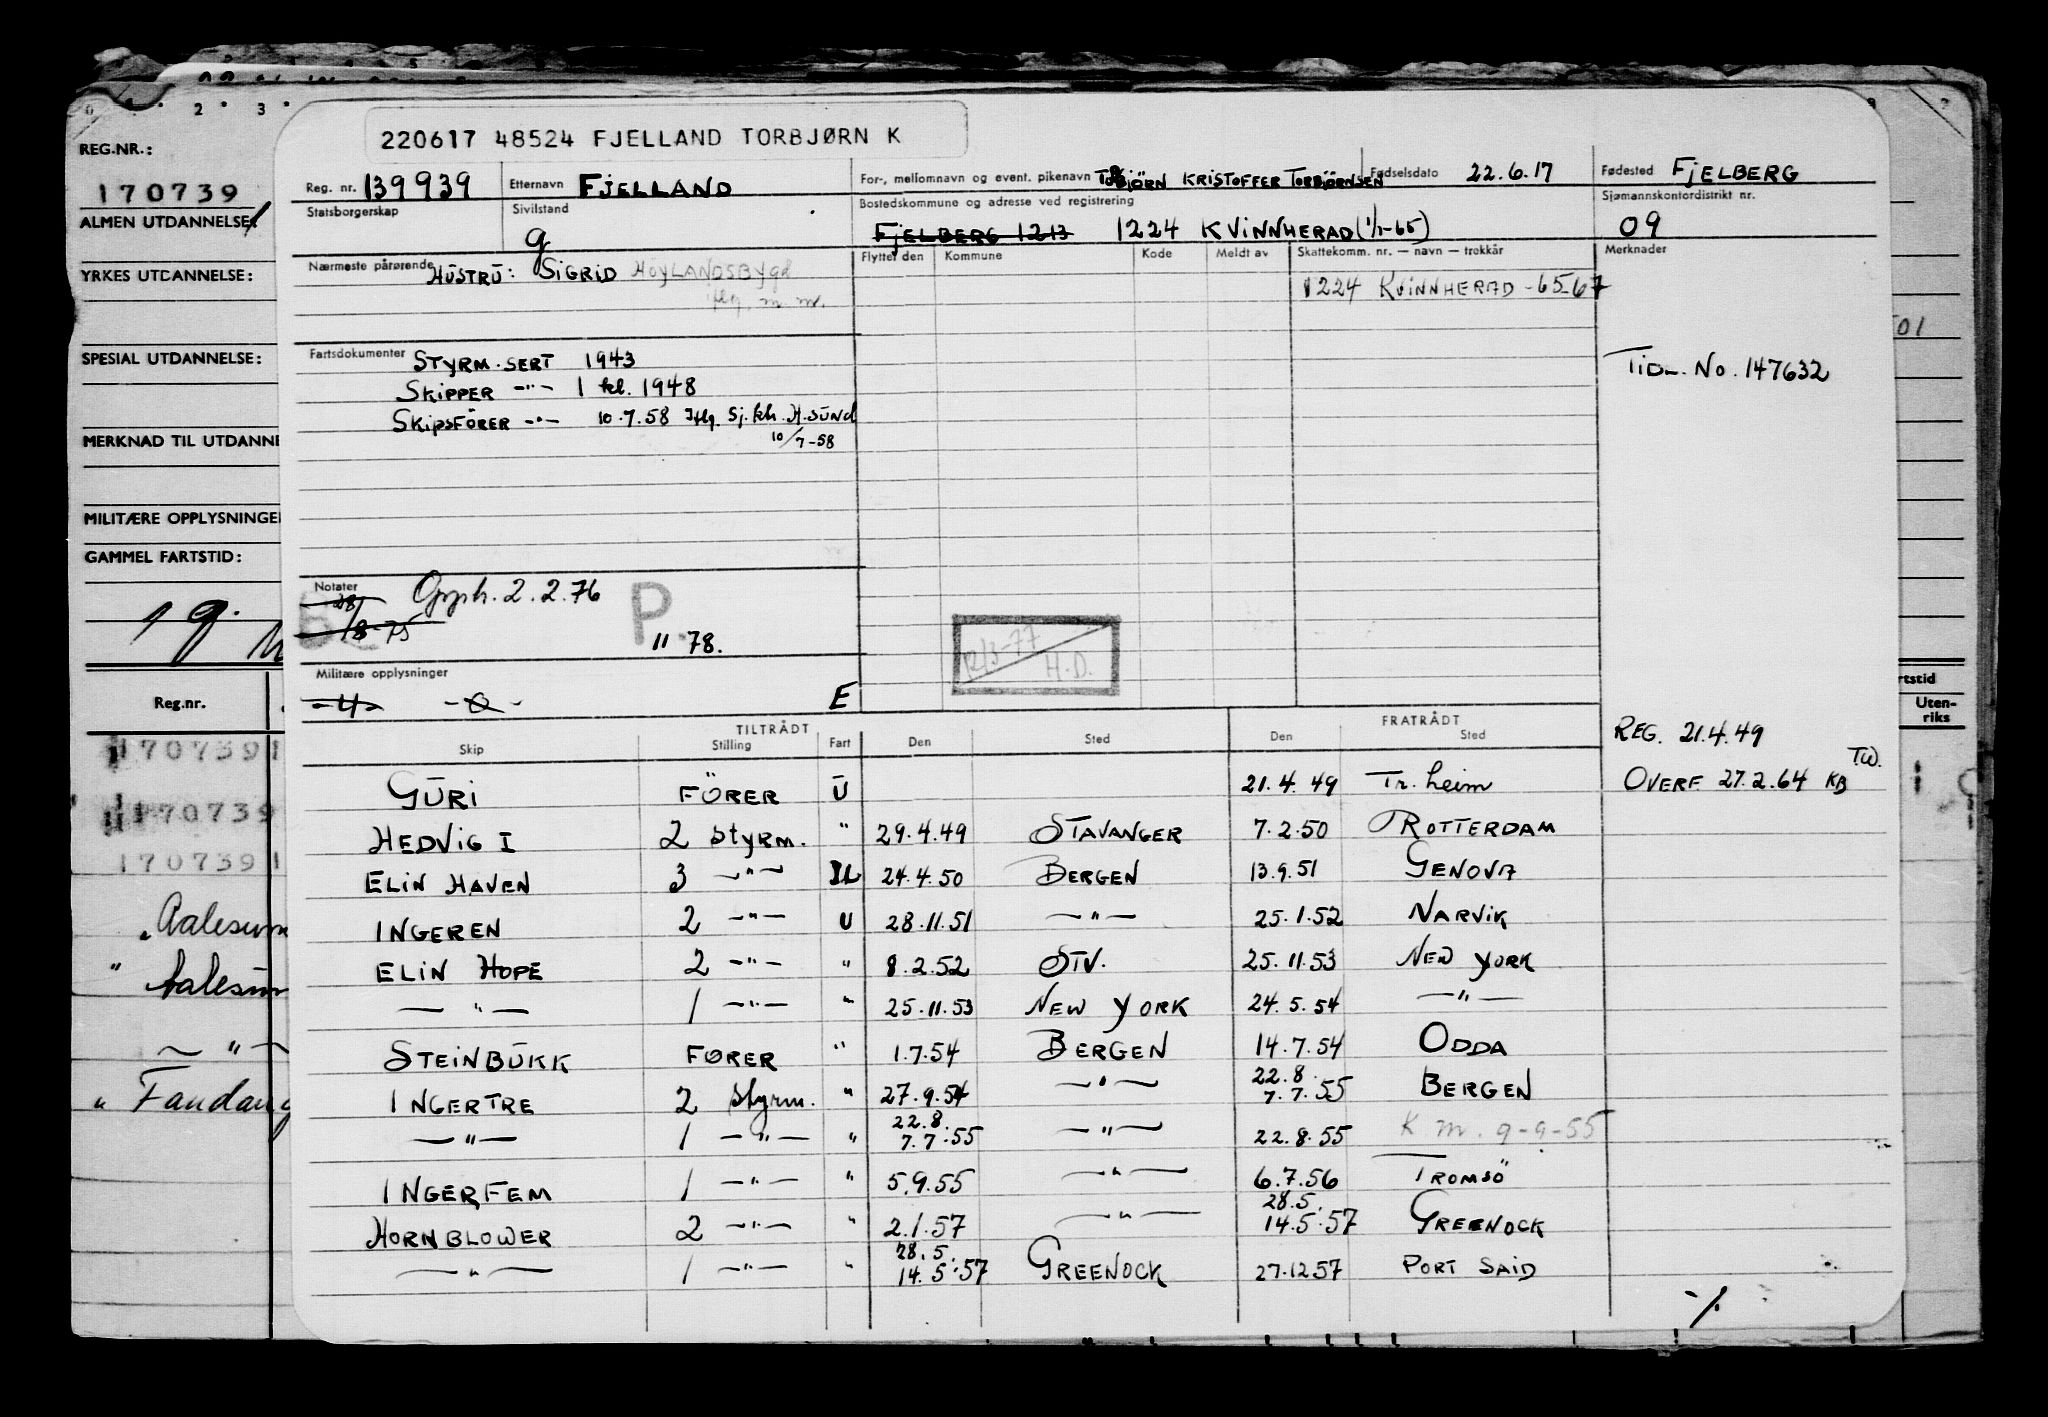 220617 48524 FJELLAND TORBJØRN K
REG.NR.:
170739
ALMEN UTDANNELSE:
YRKES UTDANNELSE:
SPESIAL UTDANNELSE:
MERKNAD TIL UTDANNE
MILITÆRE OPPLYSNINGE
GAMMEL FARTSTID:
1 g.
Reg.nr.
1707391
170739
1707391
„ Aalesun
" Aalesun
— " —
" Fandang
Reg. nr. 139939 Etternavn FJELLAND For-, mellomnavn og event. pikenavn TORBJÖRN KRISTOFFER TORBJÖRNSEN Fødselsdato 22.6.17 Fødested FJELBERG
Statsborgerskap Sivilstand g Bostedskommune og adresse ved registrering FJELBERG 1213 1224 KVINNHERAD (1/1-65) Sjømannskontordistrikt nr. 09
Nærmeste pårørende HUSTRU: SIGRID HØYLANDSBYGD
flg. m.m.
Flyttet den Kommune Kode Meldt av Skattekomm. nr. — navn — trekkår Merknader
1224 KVINNHERAD -65-67
Fartsdokumenter STYRM. SERT 1943
SKIPPER —"— 1 kl. 1948
SKIPSFÖRER —"— 10.7.58 Iflg. Sj.kh. H.SUND
10/7-58
TIDL. No. 147632
01
Notater 28/8-75 Opph. 2.2.76 P.
11 78.
12/3-77
H.D.
Militære opplysninger
-U- -O- E
TILTRÅDT FRATRÅDT
Skip Stilling Fart Den Sted Den Sted
REG. 21.4.49
T.W.
rtstid
Uten-
riks
GURI FÖRER U 21.4.49 Tr.heim OVERF 27.2.64 KB
HEDVIG I 2 Styrm. " 29.4.49 STAVANGER 7.2.50 ROTTERDAM
ELIN HAVEN 3 —"— 24.4.50 BERGEN 13.9.51 GENOVA
INGEREN 2 —"— U 28.11.51 —"— 25.1.52 NARVIK
ELIN HOPE 2 —"— " 8.2.52 STV. 25.11.53 NEW YORK
—"— 1 —"— " 25.11.53 NEW YORK 24.5.54 —"—
STEINBUKK FØRER " 1.7.54 BERGEN 14.7.54 ODDA
INGERTRE 2 Styrm. " 27.9.54 —"— 22.8. 7.7.55 BERGEN
—"— 1 —"— " 22.8. 7.7.55 —"— 22.8.55 K.m. 9-9-55
INGERFEM 1 —"— " 5.9.55 —"— 6.7.56 TROMSÖ
HORNBLOWER 2 —"— " 2.1.57 —"— 28.5. 14.5.57 GREENOCK
—"— 1 —"— " 28.5. 14.5.57 GREENOCK 27.12.57 PORT SAID
./.